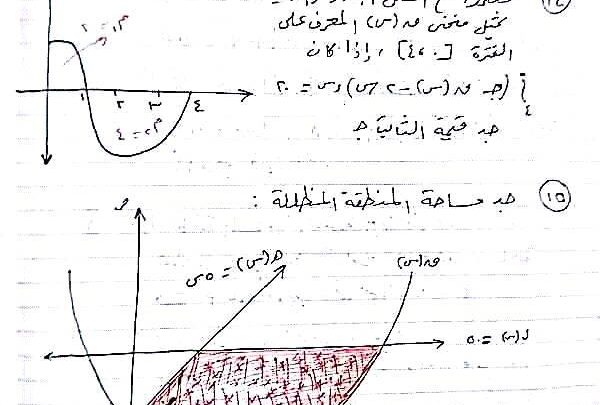 تمثل منحنى ق(س) المعرف على
الفترة [٤،٠] ، إذا كان
(جـ ق(س) – ٢س) ءس = ٢٠
جد قيمة الثابت جـ
م١ = ٢
م٢ = ٤
١ ٢ ٣ ٤
١٥ جد مساحة المنطقة المظللة :
هـ(س) = ٥س
ق(س)
ل(س) = ٥٠